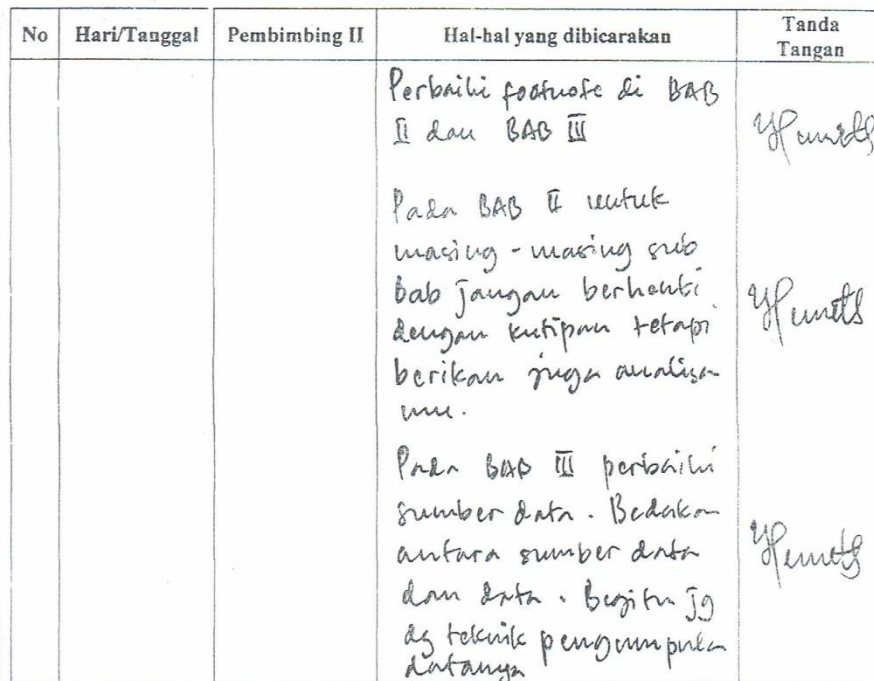 No Hari/Tanggal Pembimbing II Hal-hal yang dibicarakan Tanda Tangan
Perbaiki footnote di BAB
II dan BAB III
Pada BAB II untuk
masing-masing sub
bab jangan berhenti
dengan kutipan tetapi
berikan juga analisa
mu.
Pada BAB III perbaiki
sumber data. Bedakan
antara sumber data
dan data. Begitu jg
dg teknik pengumpulan
datanya